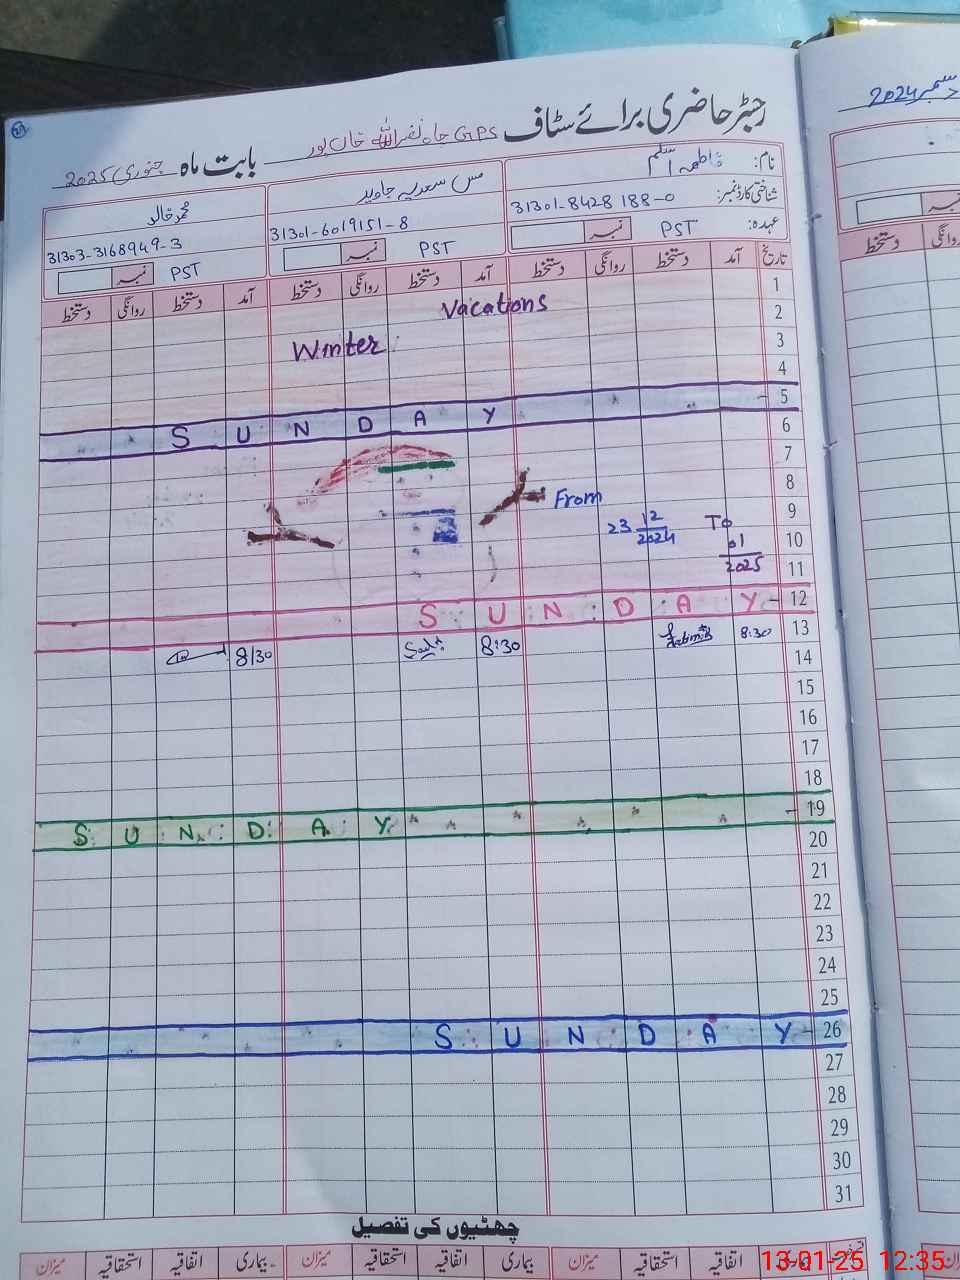 رجسٹر حاضری برائے سٹاف GPS چاہ نصراللہ خان پور بابت ماہ جنوری 2025
دسمبر 2024
نام: فاطمہ اسلم
مس سعدیہ جاوید
محمد خالد
شناختی کارڈ نمبر: 31301-8428188-0
31301-6019151-8
31303-3168949-3
عہدہ: PST نمبر
PST نمبر
PST نمبر
تاریخ آمد دستخط روانگی دستخط آمد دستخط روانگی دستخط آمد دستخط روانگی دستخط
روانگی دستخط
1
Vacations 2
Winter 3
4
SUNDAY - 5
6
7
8
From 9
23 12 2024 To 01 2025 10
11
SUNDAY - 12
13
8:30 8:30 8:30
14
15
16
17
18
SUNDAY - 19
20
21
22
23
24
25
SUNDAY - 26
27
28
29
30
31
چھٹیوں کی تفصیل
اتفاقیہ استحقاقیہ میزان بیماری اتفاقیہ استحقاقیہ میزان بیماری اتفاقیہ استحقاقیہ میزان
13-01-25 12:35